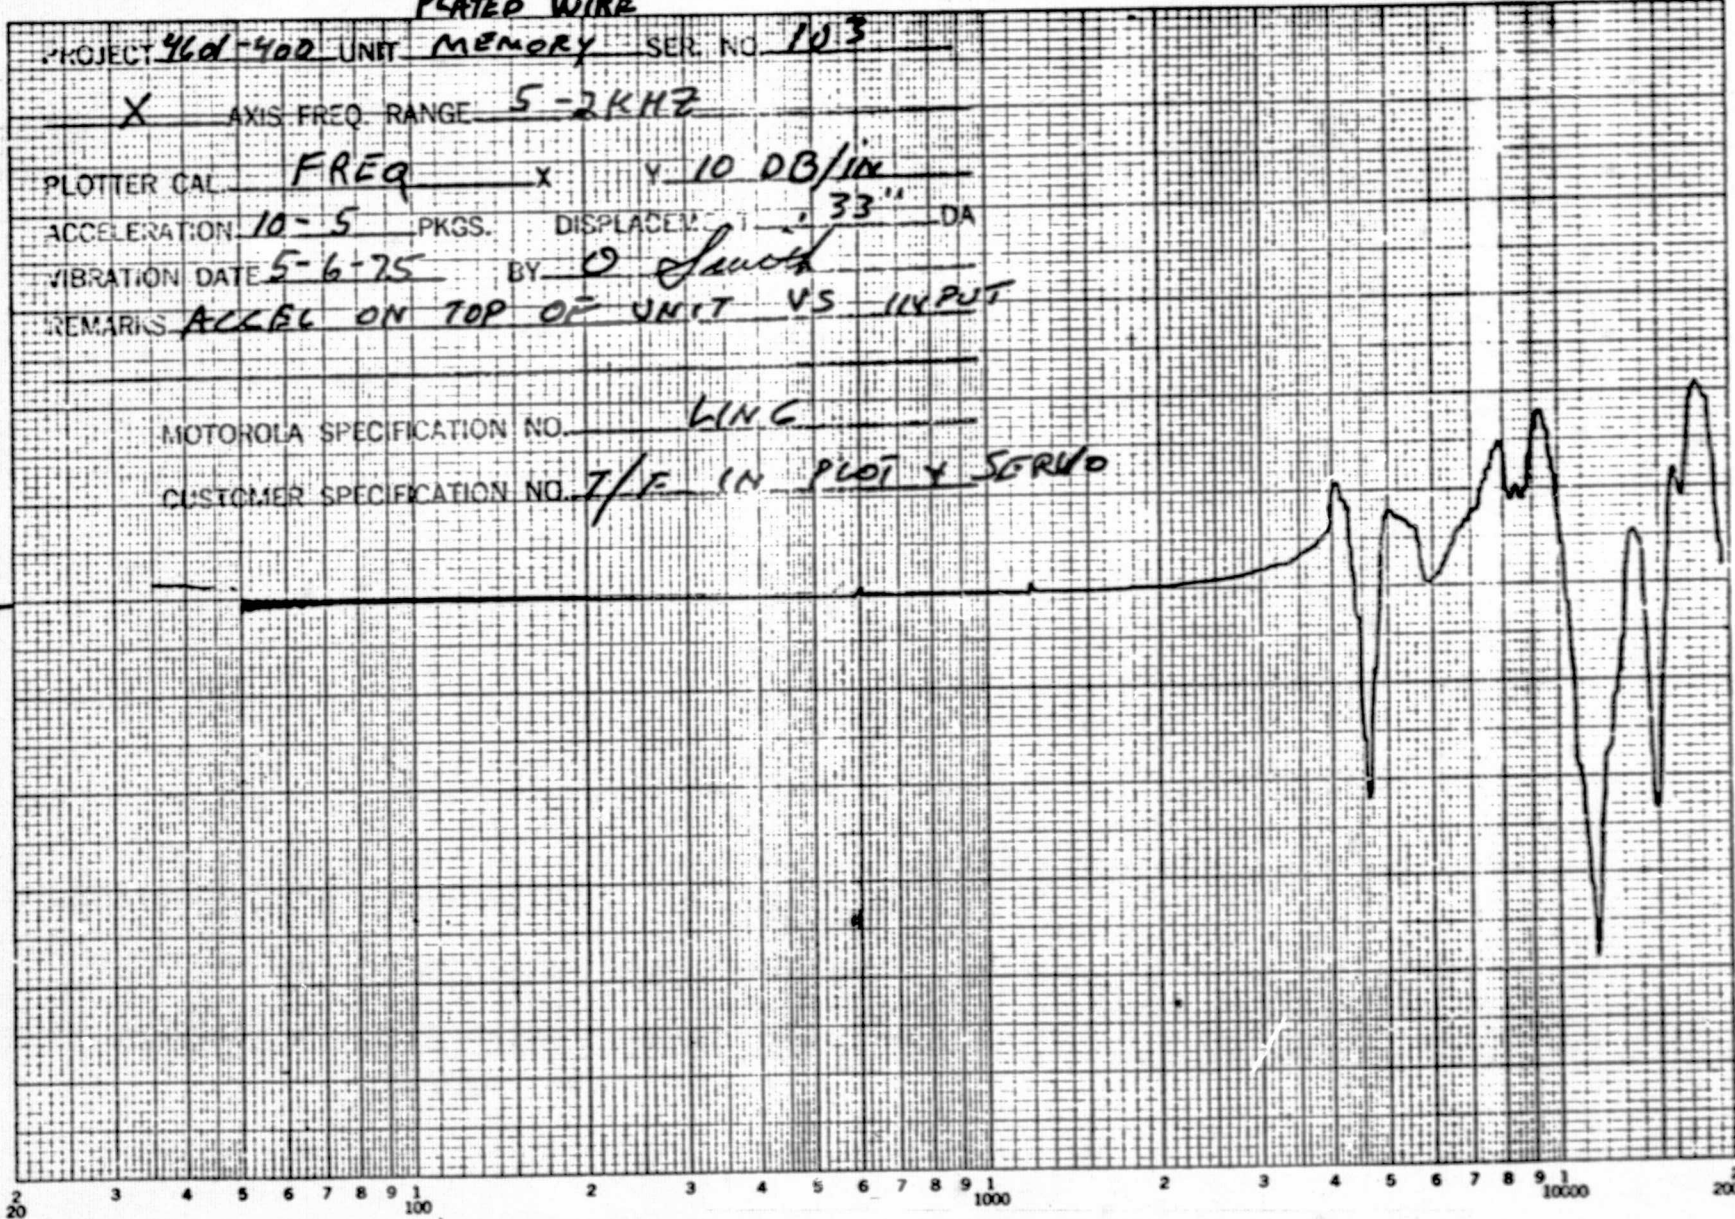 PLATED WIRE
PROJECT 4601-400 UNIT MEMORY SER. NO. 103
X AXIS FREQ. RANGE 5-2KHZ
PLOTTER CAL. FREQ X Y 10 DB/IN
ACCELERATION 10-5 PKGS. DISPLACEMENT .33" DA
VIBRATION DATE 5-6-75 BY O
REMARKS ACCEL ON TOP OF UNIT VS INPUT
MOTOROLA SPECIFICATION NO. LING
CUSTOMER SPECIFICATION NO. T/F IN PLOT & SERVO
2 3 4 5 6 7 8 9 1 2 3 4 5 6 7 8 9 1 2 3 4 5 6 7 8 9 1 2
20 100 1000 10000 200